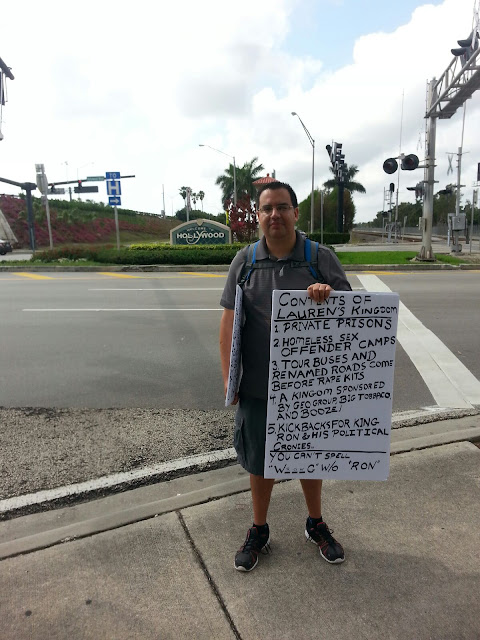 HOLLYWOOD
H
CONTENTS OF
LAUREN'S KINGDOM
1 PRIVATE PRISONS
2 HOMELESS SEX
OFFENDER CAMPS
3. TOUR BUSES AND
RENAMED ROADS COME
BEFORE RAPE KITS
4 A KINGDOM SPONSORED
BY GEO GROUP, BIG TOBACCO,
AND BOOZE!
5. KICKBACKS FOR KING
RON & HIS POLITICAL
CRONIES...
YOU CAN'T SPELL
"W___G" W/O "RON"